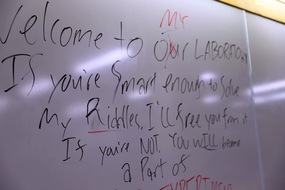 My
Welcome to Our LABORATORY
If you're Smart enough to Solve
My Riddles, I'll free you from it
If you're NOT. You WILL become
a Part of
EXPERIMENT